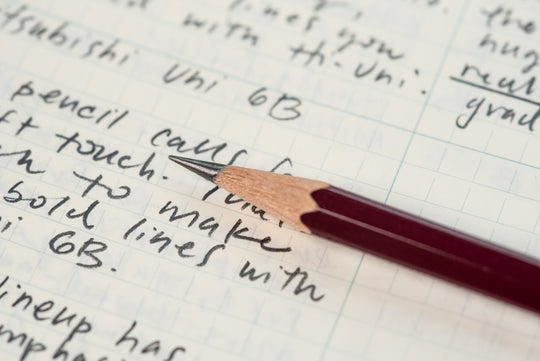 lines you
with th. Uni.
tsubishi Uni 6B
pencil calls
ft touch.
to make
bold lines with
i 6B.
lineup has
the
hug
real
grad